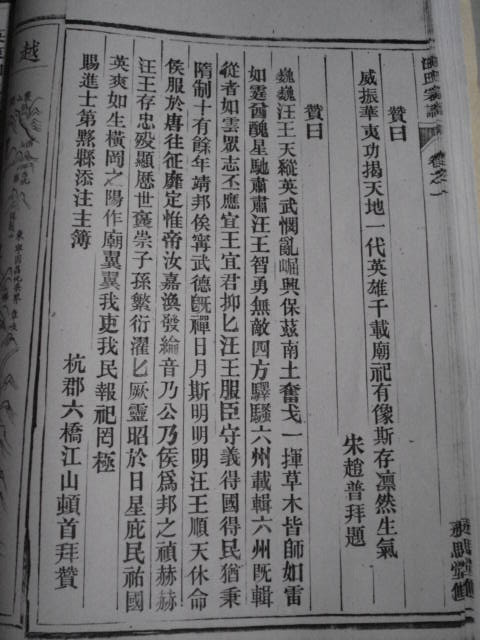 卷之一
贊曰
威振華夷功揭天地一代英雄千載廟祀有像斯存凛然生氣
朱趙普拜題
贊曰
巍巍汪王天縱英武憫亂崛興保茲南土奮戈一揮草木皆師如雷
如霆酋醜星馳肅肅汪王智勇無敵四方驛騷六州載輯六州既輯
從者如雲眾志丕應宜王宜君抑匕汪王服臣守義得國得民猶秉
隋制十有餘年靖邦俟寧武德旣禪日月斯明明明汪王順天休命
侯服於唐往征靡定惟帝汝嘉渙發綸音乃公乃侯爲邦之禎赫赫
汪王存忠殁顯歷世褒崇子孫繁衍濯匕厥靈昭於日星庇民祐國
英爽如生橫岡之陽作廟翼翼我吏我民報祀罔極
賜進士第黟縣添注主簿
杭郡六橋江山頓首拜贊
越